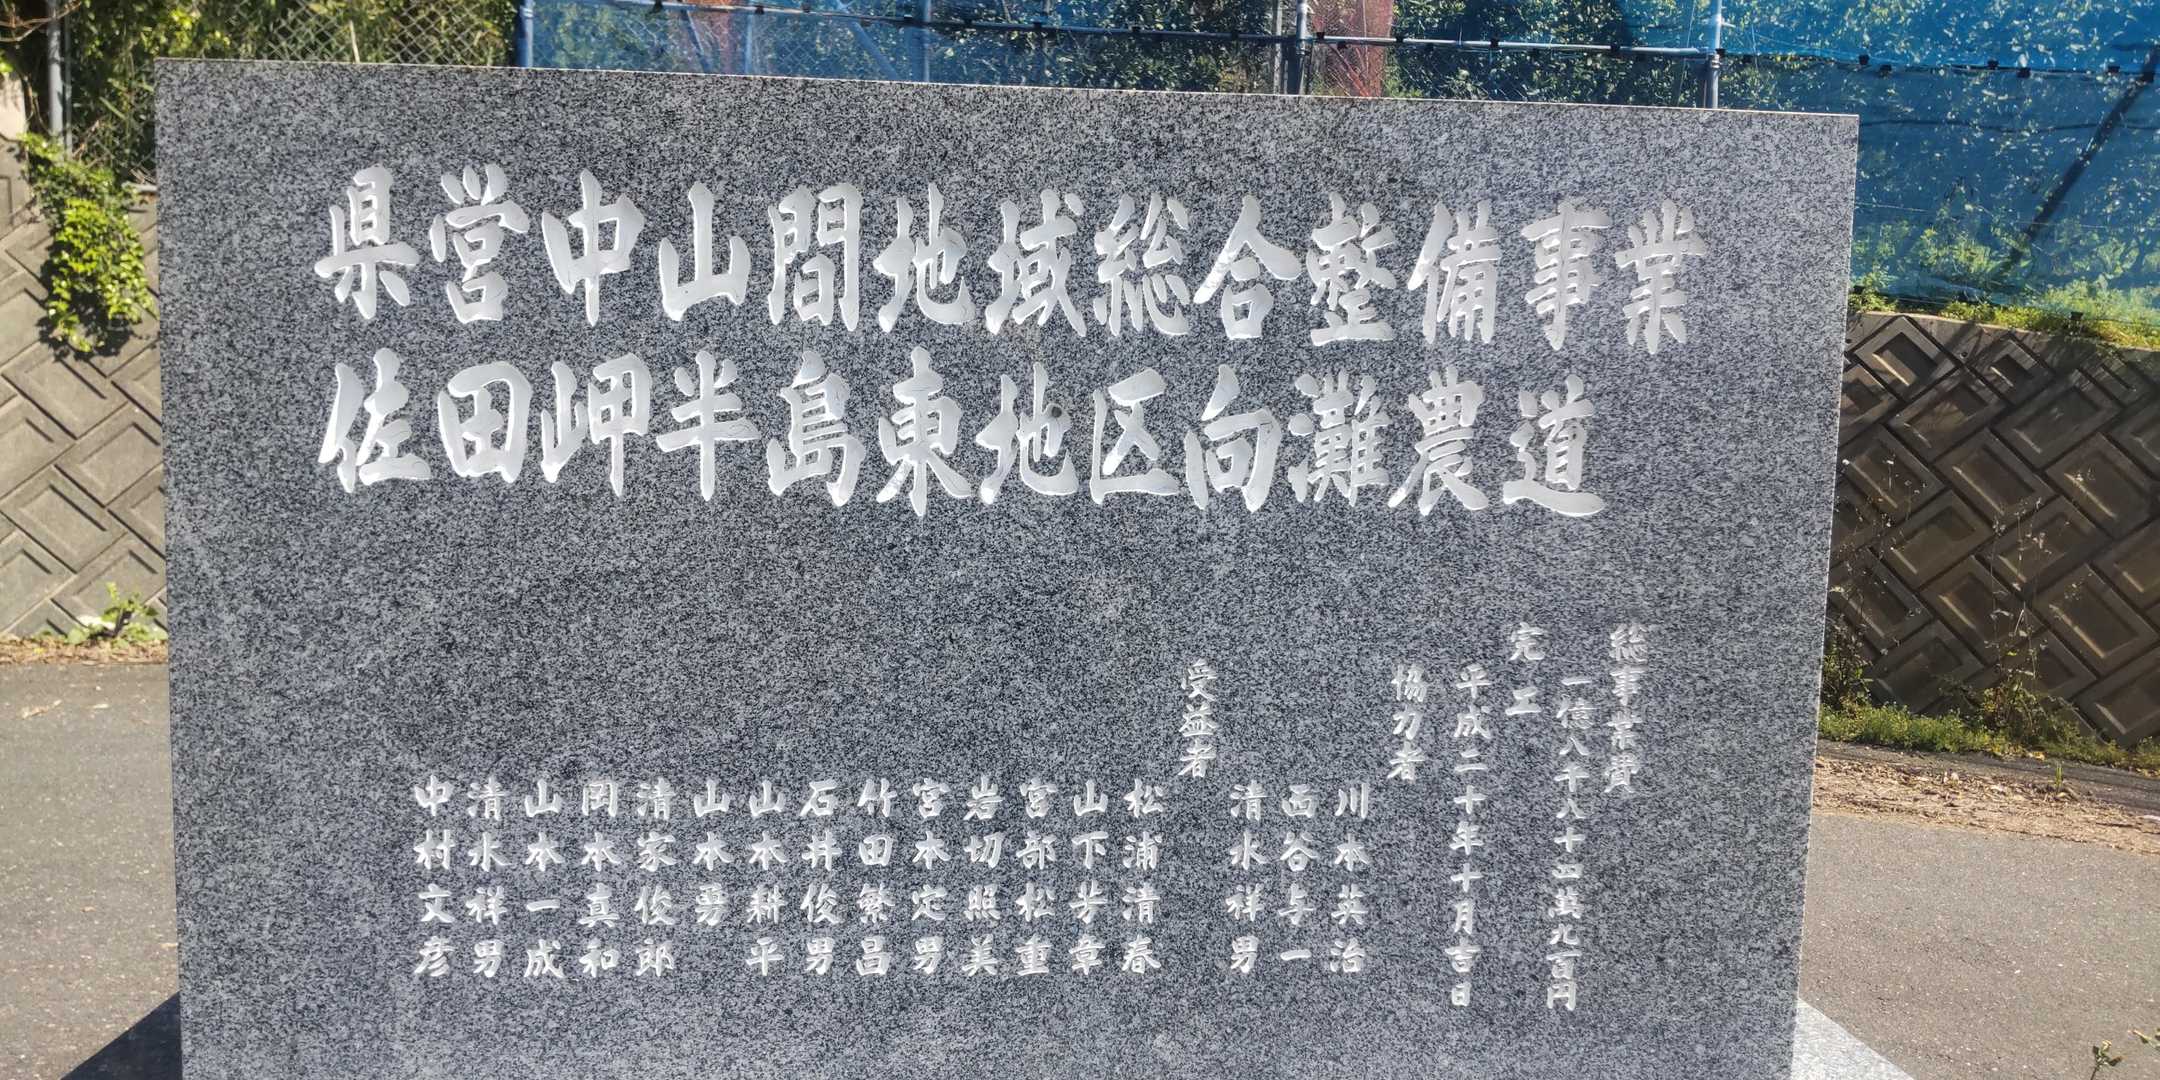 県営中山間地域総合整備事業
佐田岬半島東地区向灘農道
総事業費
一億八千八十四萬九百円
完工
平成二十年十月吉日
協力者
川本英治
西谷与一
清水祥男
受益者
松浦清春
山下芳章
宮部松重
岩切照美
宮本定男
竹田繁昌
石井俊男
山本耕平
山本勇
清家俊郎
岡本真和
山本一成
清水祥男
中村文彦